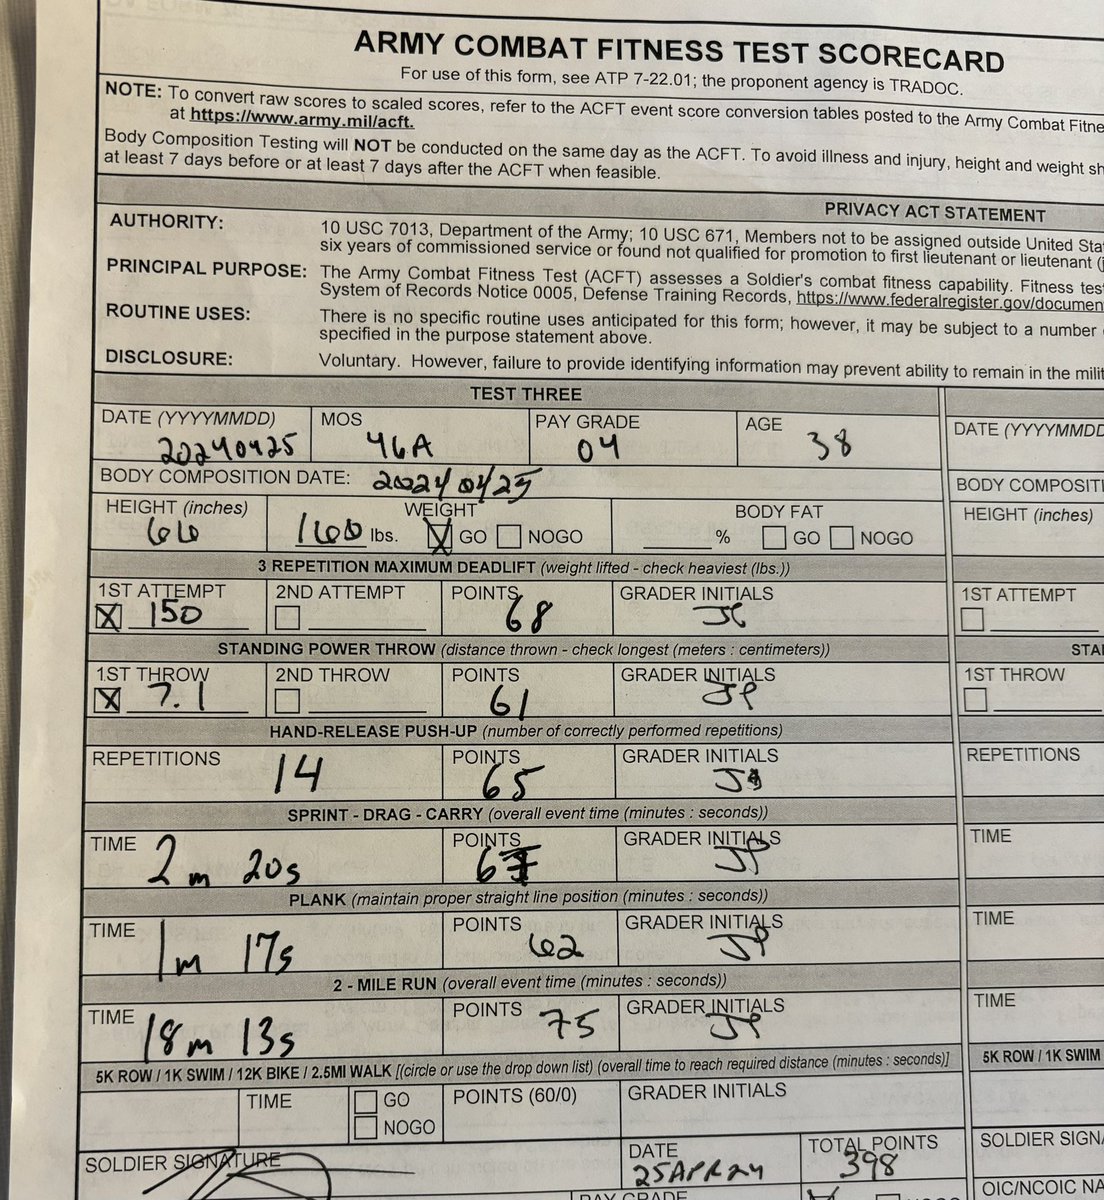 ARMY COMBAT FITNESS TEST SCORECARD
For use of this form, see ATP 7-22.01; the proponent agency is TRADOC.
NOTE: To convert raw scores to scaled scores, refer to the ACFT event score conversion tables posted to the Army Combat Fitne
at https://www.army.mil/acft.
Body Composition Testing will NOT be conducted on the same day as the ACFT. To avoid illness and injury, height and weight sh
at least 7 days before or at least 7 days after the ACFT when feasible.
PRIVACY ACT STATEMENT
AUTHORITY: 10 USC 7013, Department of the Army; 10 USC 671, Members not to be assigned outside United Sta
six years of commissioned service or found not qualified for promotion to first lieutenant or lieutenant (j
PRINCIPAL PURPOSE: The Army Combat Fitness Test (ACFT) assesses a Soldier's combat fitness capability. Fitness tes
System of Records Notice 0005, Defense Training Records, https://www.federalregister.gov/documen
ROUTINE USES: There is no specific routine uses anticipated for this form; however, it may be subject to a number
specified in the purpose statement above.
DISCLOSURE: Voluntary. However, failure to provide identifying information may prevent ability to remain in the milit
TEST THREE
DATE (YYYYMMDD) MOS PAY GRADE AGE DATE (YYYYMMDD
20240425 46A 04 38
BODY COMPOSITION DATE: 20240425 BODY COMPOSITI
HEIGHT (inches) WEIGHT BODY FAT HEIGHT (inches)
66 160 lbs. X GO NOGO % GO NOGO
3 REPETITION MAXIMUM DEADLIFT (weight lifted - check heaviest (lbs.))
1ST ATTEMPT 2ND ATTEMPT POINTS GRADER INITIALS 1ST ATTEMPT
X 150 68
STANDING POWER THROW (distance thrown - check longest (meters : centimeters)) STA
1ST THROW 2ND THROW POINTS GRADER INITIALS 1ST THROW
X 7.1 61 JP
HAND-RELEASE PUSH-UP (number of correctly performed repetitions)
REPETITIONS POINTS GRADER INITIALS REPETITIONS
14 65
SPRINT - DRAG - CARRY (overall event time (minutes : seconds))
TIME POINTS GRADER INITIALS TIME
2 m 20s JP
PLANK (maintain proper straight line position (minutes : seconds))
TIME POINTS GRADER INITIALS TIME
1 m 17s 62 JP
2 - MILE RUN (overall event time (minutes : seconds))
TIME POINTS GRADER INITIALS TIME
18 m 13s 75 JP
5K ROW / 1K SWIM / 12K BIKE / 2.5MI WALK [(circle or use the drop down list) (overall time to reach required distance (minutes : seconds)] 5K ROW / 1K SWIM
TIME GO POINTS (60/0) GRADER INITIALS TIME
NOGO
SOLDIER SIGNATURE DATE TOTAL POINTS SOLDIER SIGN
25APR24 398
PAY GRADE OIC/NCOIC NA